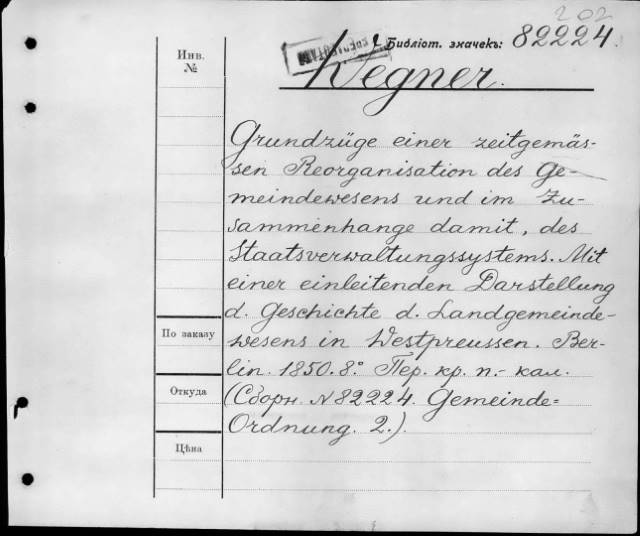 202
Библіот. значекъ: 82224.
Инв.
№
Wegner.
Grundzüge einer zeitgemäs-
sen Reorganisation des Ge-
meindewesens und im Zu-
sammenhange damit, des
Staatsverwaltungssystems. Mit
einer einleitenden Darstellung
d. Geschichte d. Landgemeinde-
wesens in Westpreussen. Ber-
lin. 1850. 8.° Пер. кр. п.- кал.
(Сборн. N 82224. Gemeinde=
Ordnung. 2.).
По заказу
Откуда
Цѣна